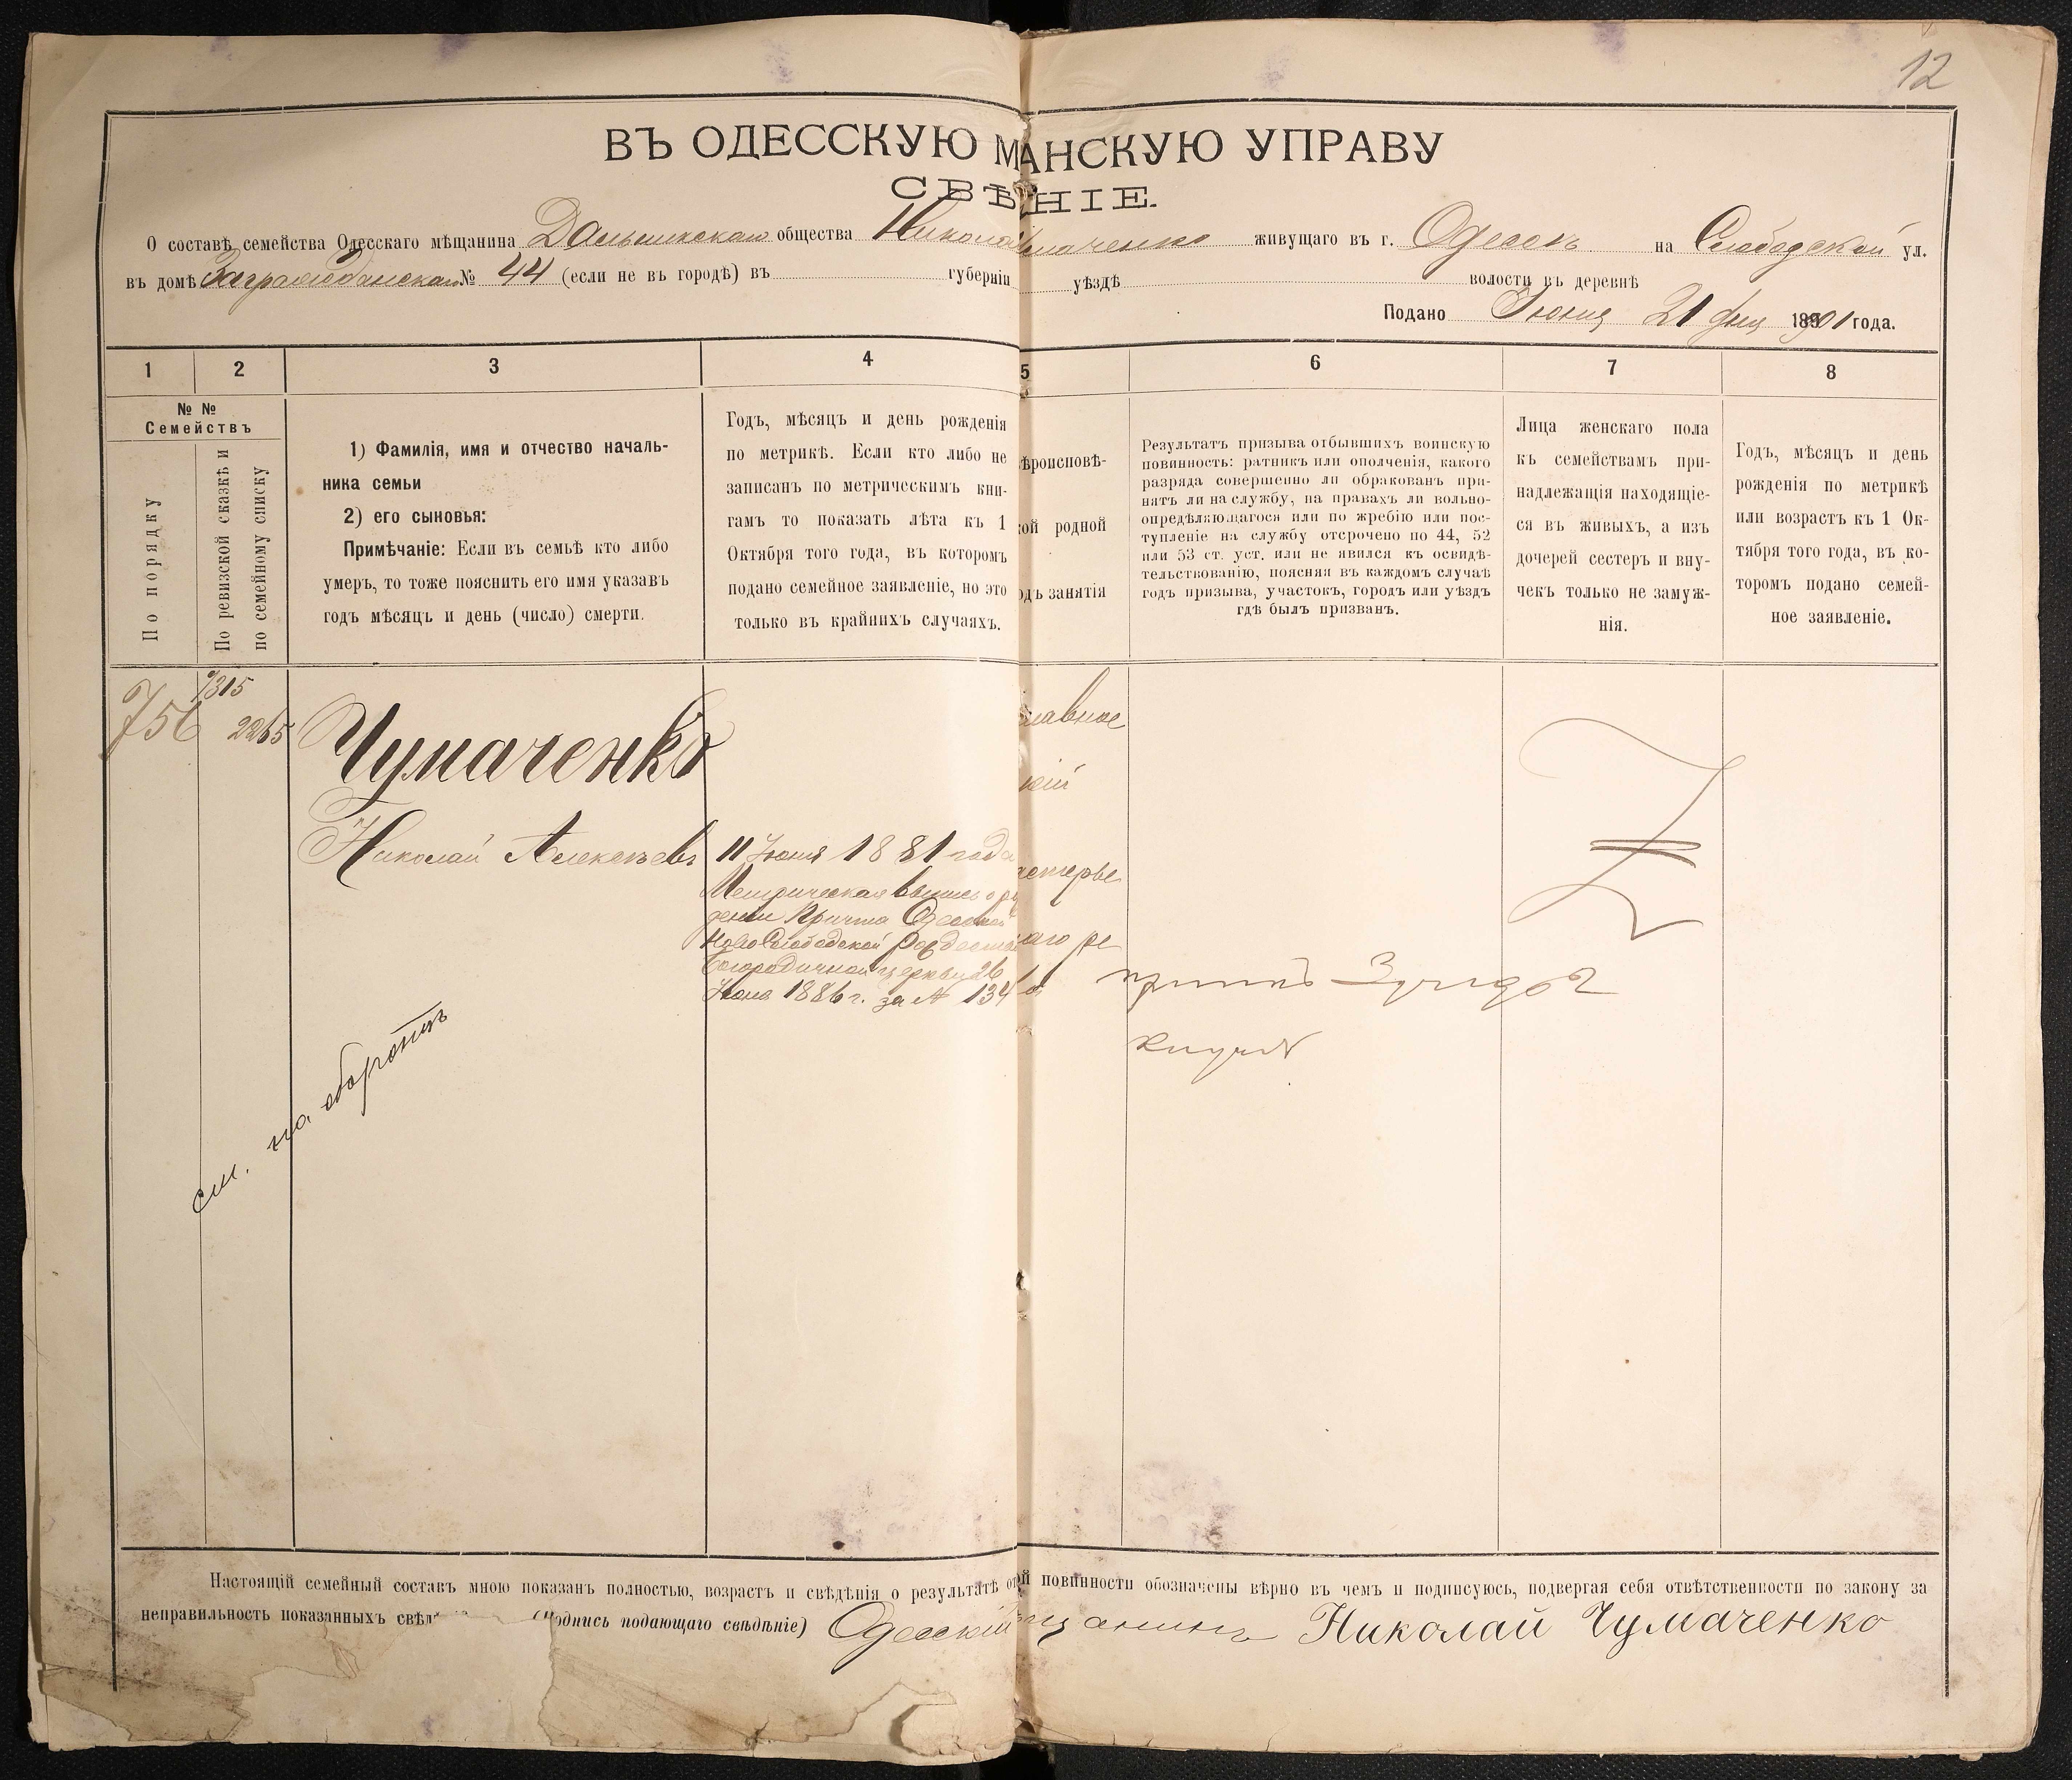 12
ВЪ ОДЕССКУЮ М АНСКУЮ УПРАВУ
СВѢ НІЕ.
О составѣ семейства Одесскаго мѣщанина Дальникскаго общества Никола маченко живущаго въ г. Одессѣ на Слободской ул.
въ домѣ № 44 (если не въ городѣ) въ губерніи уѣздѣ волости въ деревнѣ
Подано Іюня 21 дня 1901 года.
1 2 3 4 5 6 7 8
№ №
Семействъ
По порядку
По ревизской сказкѣ и
по семейному списку
1) Фамилія, имя и отчество началь-
ника семьи
2) его сыновья:
Примѣчаніе: Если въ семьѣ кто либо
умеръ, то тоже пояснить его имя указавъ
годъ мѣсяцъ и день (число) смерти.
Годъ, мѣсяцъ и день рожденія
по метрикѣ. Если кто либо не
записанъ по метрическимъ кни-
гамъ то показать лѣта къ 1
Октября того года, въ которомъ
подано семейное заявленіе, но это
только въ крайнихъ случаяхъ.
ѣроисповѣ-
кой родной
одъ занятія
Результатъ призыва отбывшихъ воинскую
повинность: ратникъ или ополченія, какого
разряда совершенно ли обракованъ при-
нятъ ли на службу, на правахъ ли вольно-
опредѣляющагося или по жребію или пос-
тупленіе на службу отсрочено по 44, 52
или 53 ст. уст. или не явился къ освидѣ-
тельствованію, поясняя въ каждомъ случаѣ
годъ призыва, участокъ, городъ или уѣздъ
гдѣ былъ призванъ.
Лица женскаго пола
къ семействамъ при-
надлежащія находящіе-
ся въ живыхъ, а изъ
дочерей сестеръ и вну-
чекъ только не замуж-
нія.
Годъ, мѣсяцъ и день
рожденія по метрикѣ
или возрастъ къ 1 Ок-
тября того года, въ ко-
торомъ подано семей-
ное заявленіе.
756 2265
Чумаченко
Николай Алексѣевъ
11 Іюня 1881 года
Метрическая выпись о р
деніи Причта Одесской
Ново Слободской Рождество
Богородичной церкви 26
Іюня 1886 г. за № 134
славное
кій
астерье
аго ре
см. на оборотѣ
Настоящій семейный составъ мною показанъ полностью, возрастъ и свѣдѣнія о результатѣ от й повинности обозначены вѣрно въ чемъ и подписуюсь, подвергая себя отвѣтственности по закону за
неправильность показанныхъ свѣд (подпись подающаго свѣдѣніе) Одесскій щанинъ Николай Чумаченко